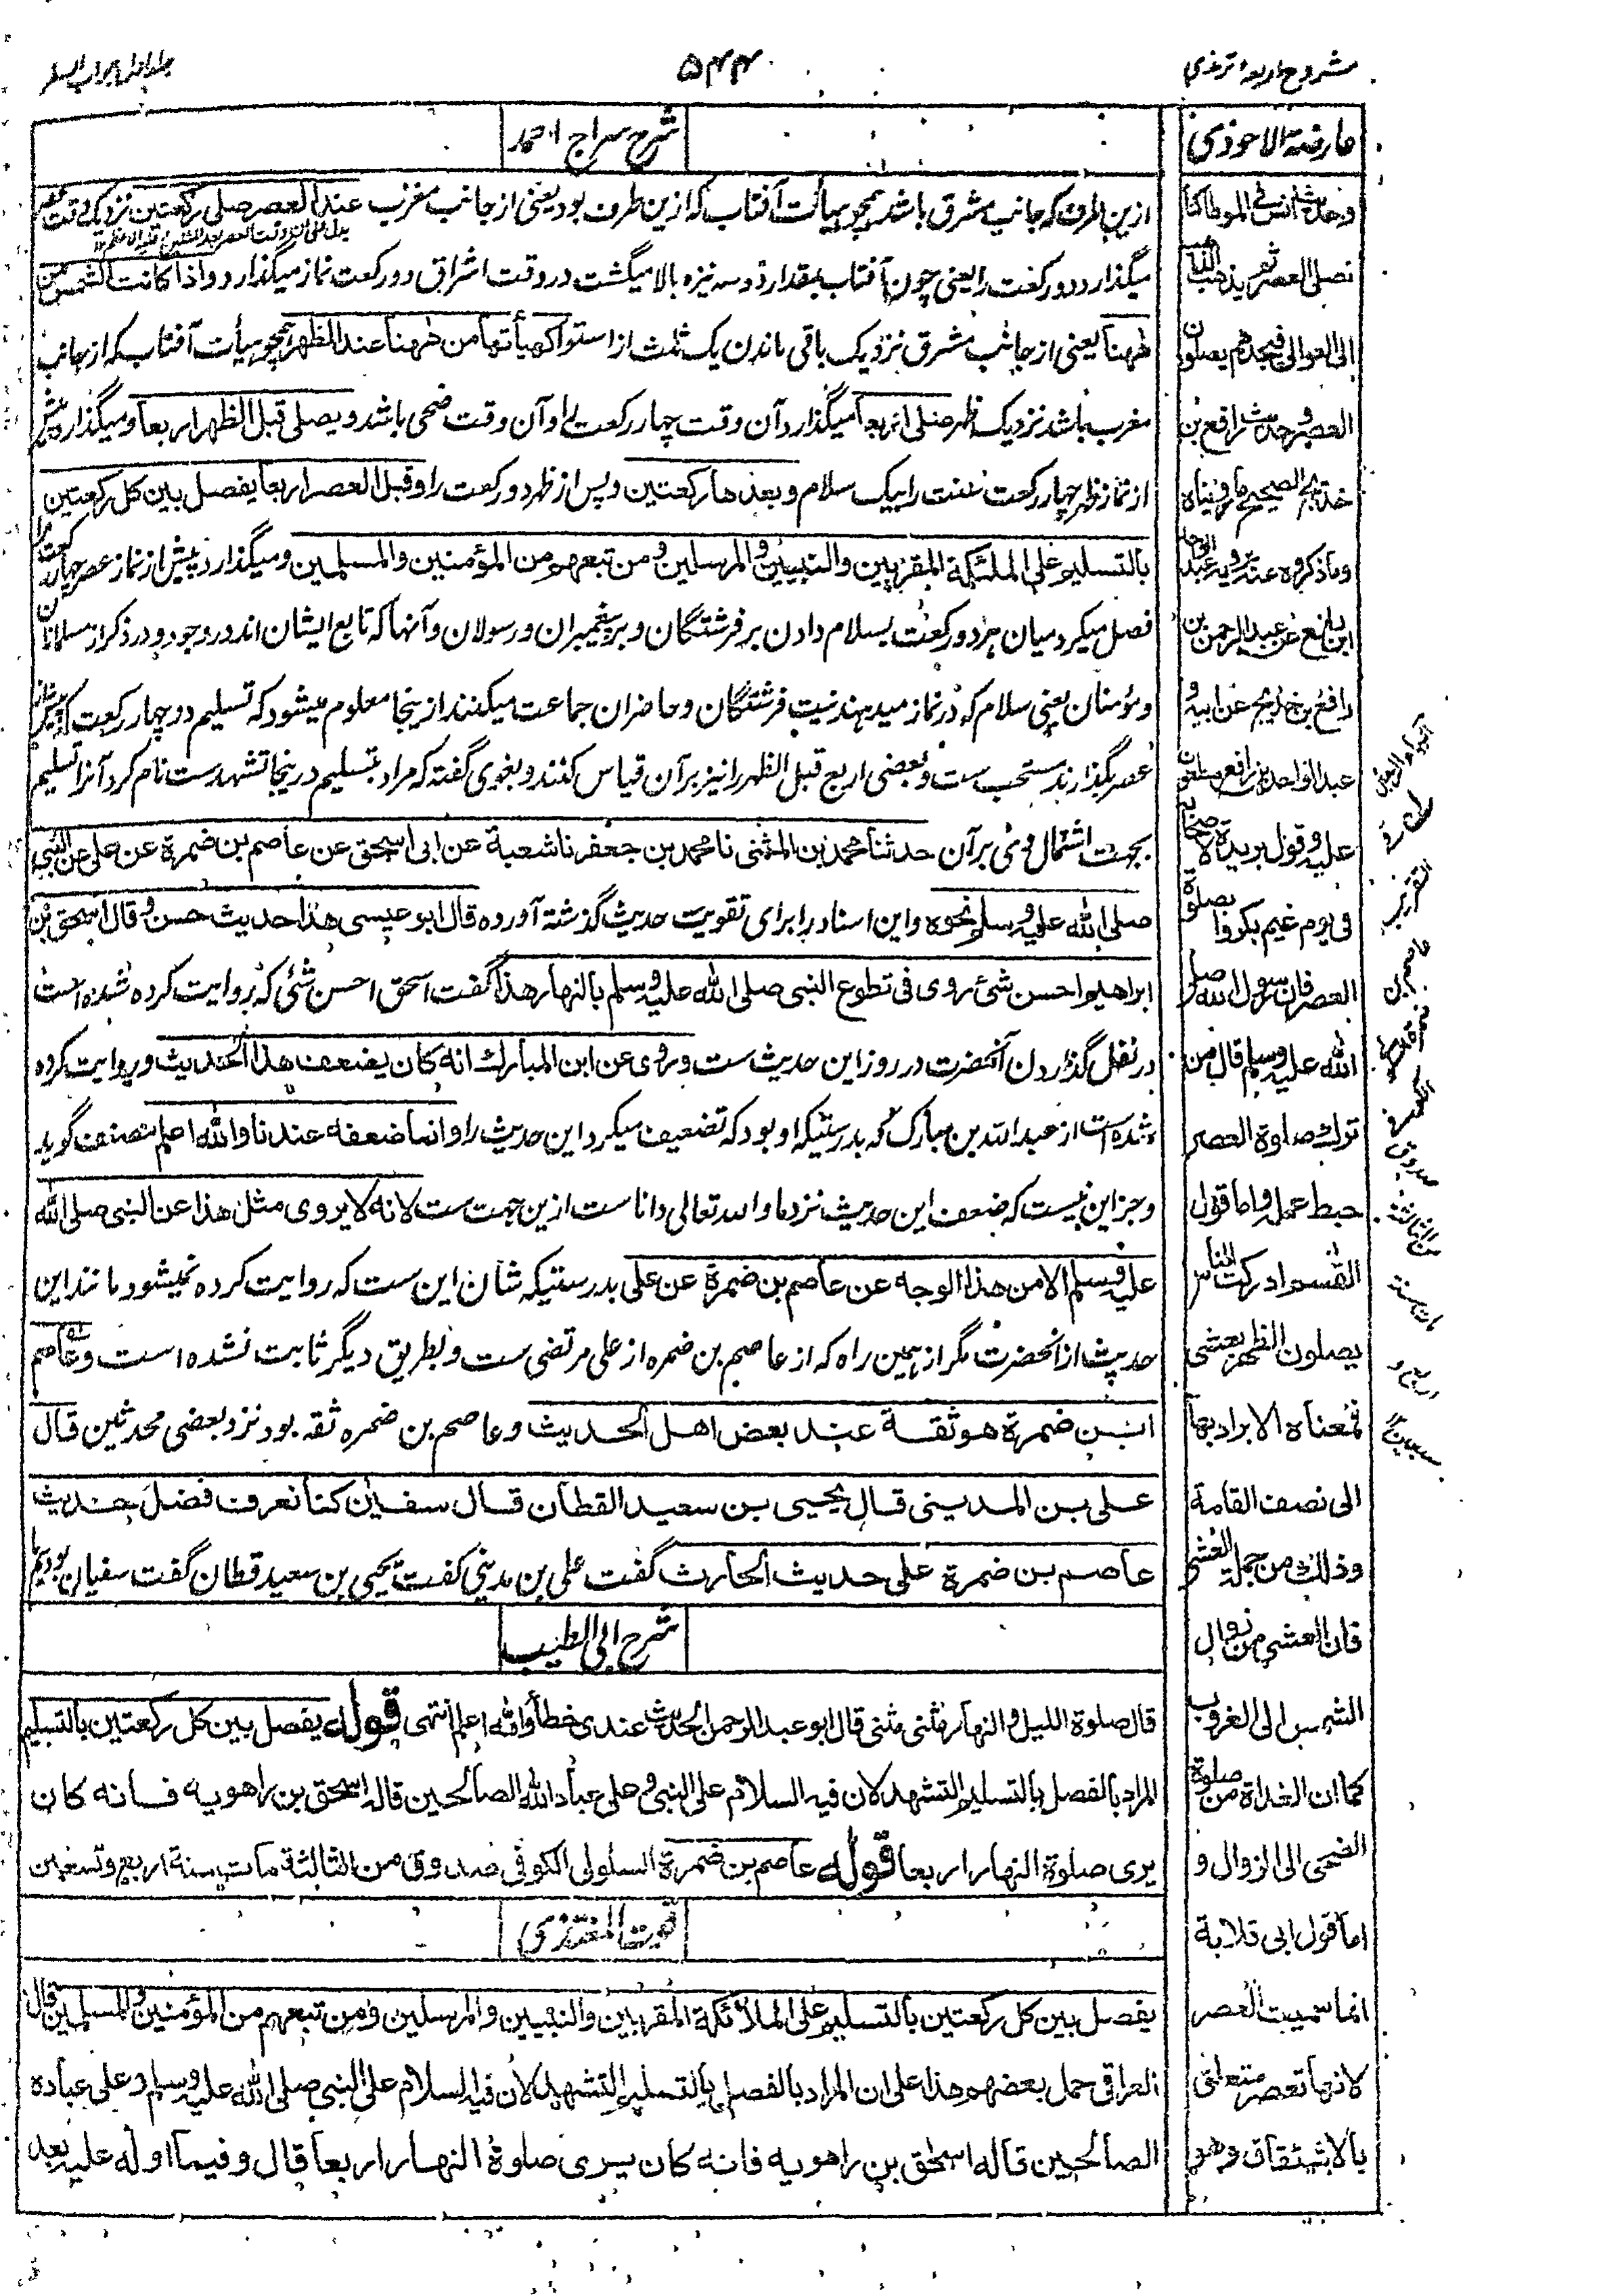 مشروح اربعهٔ ترمذی
۵۴۴
جلد اول ابواب السفر
عارضة الاحوذی
وحدیث انس فی الموطا کنا
نصلی العصر ثم یذهب الذاهب
الی العوالی فیجدهم یصلون
العصر وحدیث رافع بن
خدیج الصحیح ما رویناه
وما ذکروه عنه یرویه عبد الواحد
ابن نافع عن عبد الرحمن بن
رافع بن خدیج عن ابیه و
عبد الواحد بن رافع
علیه وقول بریدة لاصحابه
فی یوم غیم بکروا بصلوة
العصر فان رسول الله صلی
الله علیه وسلم قال من
ترک صلوة العصر
حبط عمله واما قول
القسم ادرکت الناس
یصلون الظهر بعشی
فمعناه الابراد بها
الی نصف القامة
وذلک من جملة العشی
فان العشی من زوال
الشمس الی الغروب
کما ان الغداة من صلوة
الضحی الی الزوال و
اما قول ابی قلابة
انما سمیت العصر
لانها تعصر متعلق
بالاشتقاق وهو
شرح سراج احمد
ازین طرف که جانب مشرق باشد همچو هیأت آفتاب که ازین طرف بود یعنی از جانب مغرب عند العصر صلی رکعتین نزدیک وقت عصر
میگذارد دو رکعت را یعنی چون آفتاب بمقدار دو سه نیزه بالا میگشت در وقت اشراق دو رکعت نماز میگذارد واذا کانت الشمس من
ههنا یعنی از جانب مشرق نزدیک باقی ماندن یک ثلث از استوا کهیأتها من ههنا عند الظهر همچو هیأت آفتاب که از جانب
مغرب باشد نزدیک ظهر صلی اربعا میگذارد آن وقت چهار رکعت و آن وقت ضحی باشد ویصلی قبل الظهر اربعا ومیگذارد پیش
از نماز ظهر چهار رکعت سنت را بیک سلام وبعدها رکعتین و پس از ظهر دو رکعت را وقبل العصر اربعا یفصل بین کل رکعتین
بالتسلیم علی الملئکة المقربین والنبیین والمرسلین ومن تبعهم من المؤمنین والمسلمین ومیگذارد پیش از نماز عصر چهار رکعت را
فصل میکرد میان هر دو رکعت بسلام دادن بر فرشتگان و بر پیغمبران و رسولان و آنها که تابع ایشان اند در وجود و در ذکر از مسلمانان
و مؤمنان یعنی سلام که در نماز میدهند نیت فرشتگان و حاضران جماعت میکنند ازینجا معلوم میشود که تسلیم در چهار رکعت که پیش از
عصر بگذارند مستحب ست و بعضی اربع قبل الظهر را نیز بر آن قیاس کنند و بغوی گفته که مراد بتسلیم درینجا تشهد ست نام کرد آنرا تسلیم
بجهت اشتمال وی بر آن حدثنا محمد بن المثنی نا محمد بن جعفر نا شعبة عن ابی اسحق عن عاصم بن ضمرة عن علی عن النبی
صلی الله علیه وسلم نحوه واین اسناد را برای تقویت حدیث گذشته آورده قال ابو عیسی هذا حدیث حسن وقال اسحق بن
ابراهیم احسن شئ روی فی تطوع النبی صلی الله علیه وسلم بالنهار هذا گفت اسحق احسن شئی که روایت کرده شده است
در نفل گذاردن آنحضرت در روز این حدیث ست وروی عن ابن المبارک انه کان یضعف هذا الحدیث وروایت کرده
شده است از عبد الله بن مبارک که بدرستیکه او بود که تضعیف میکرد این حدیث را وانما ضعفه عندنا والله اعلم مصنف گوید
و جز این نیست که ضعف این حدیث نزد ما والله تعالی دانا ست ازین جهت ست لانه لا یروی مثل هذا عن النبی صلی الله
علیه وسلم الا من هذا الوجه عن عاصم بن ضمرة عن علی بدرستیکه شان این ست که روایت کرده نمیشود مانند این
حدیث از آنحضرت مگر از همین راه که از عاصم بن ضمره از علی مرتضی ست و بطریق دیگر ثابت نشده است وعاصم
ابن ضمرة هو ثقة عند بعض اهل الحدیث و عاصم بن ضمره ثقه بود نزد بعضی محدثین قال
علی بن المدینی قال یحیی بن سعید القطان قال سفین کنا نعرف فضل حدیث
عاصم بن ضمرة علی حدیث الحارث گفت علی بن مدینی گفت یحیی بن سعید قطان گفت سفیان بودیم ما
شرح ابی الطیب
قال صلوة اللیل والنهار مثنی مثنی قال ابو عبد الرحمن الحدیث عندی خطأ والله اعلم انتهی قوله یفصل بین کل رکعتین بالتسلیم
المراد بالفصل بالتسلیم التشهد لان فیه السلام علی النبی وعلی عباد الله الصالحین قاله اسحق بن راهویه فانه کان
یری صلوة النهار اربعا قوله عاصم بن ضمرة السلولی الکوفی صدوق من الثالثة مات سنة اربع وسبعین
قوت المغتذی
یفصل بین کل رکعتین بالتسلیم علی الملائکة المقربین والنبیین والمرسلین ومن تبعهم من المؤمنین والمسلمین قال
العراقی حمل بعضهم هذا علی ان المراد بالفصل بالتسلیم التشهد لان فیه السلام علی النبی صلی الله علیه وسلم وعلی عباده
الصالحین قاله اسحق بن راهویه فانه کان یری صلوة النهار اربعا قال وفیما اوله علیه بعد